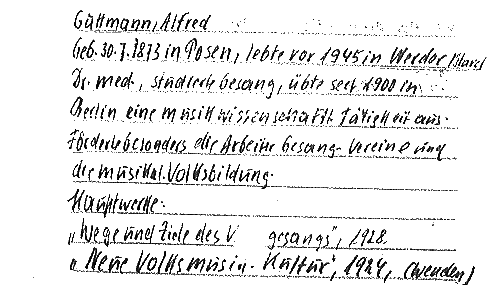 Guttmann, Alfred
Geb. 30.7.1873 in Posen, lebte vor 1945 in Werder
Dr. med., studierte Gesang, übte seit 1900 in
Berlin eine musikwissenschaftl. Tätigkeit aus.
Förderte besonders die Arbeiter Gesang-Vereine und
die musikal. Volksbildung.
Hauptwerke:
„Wege und Ziele des V gesangs", 1928
„Neue Volksmusik-Kultur", 1924,